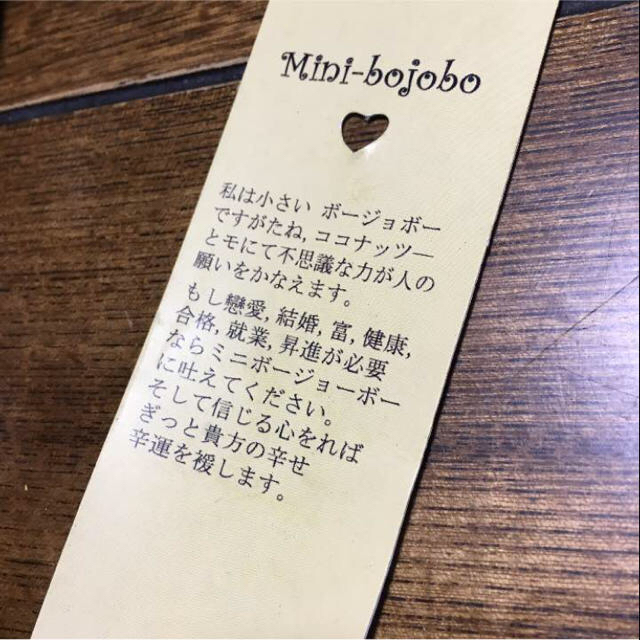 Mini-bojobo
私は小さい ボージョボー
ですがたね, ココナッツ一
とモにて不思議な力が人の
願いをかなえます。
もし戀愛, 結婚, 富, 健康,
合格, 就業, 昇進が必要
ならミニボージョーボー
に吐えてください。
そして信じる心をれば
ぎっと貴方の幸せ
幸運を援します。